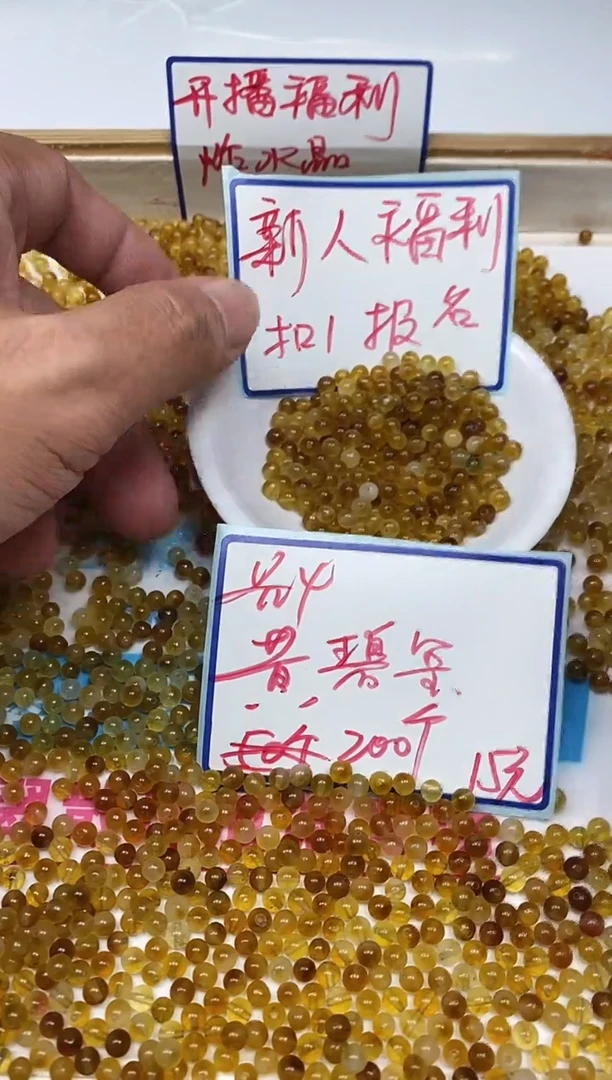 开播福利
炸水晶
新人福利
扣1报名
黄碧玺
200个
15元